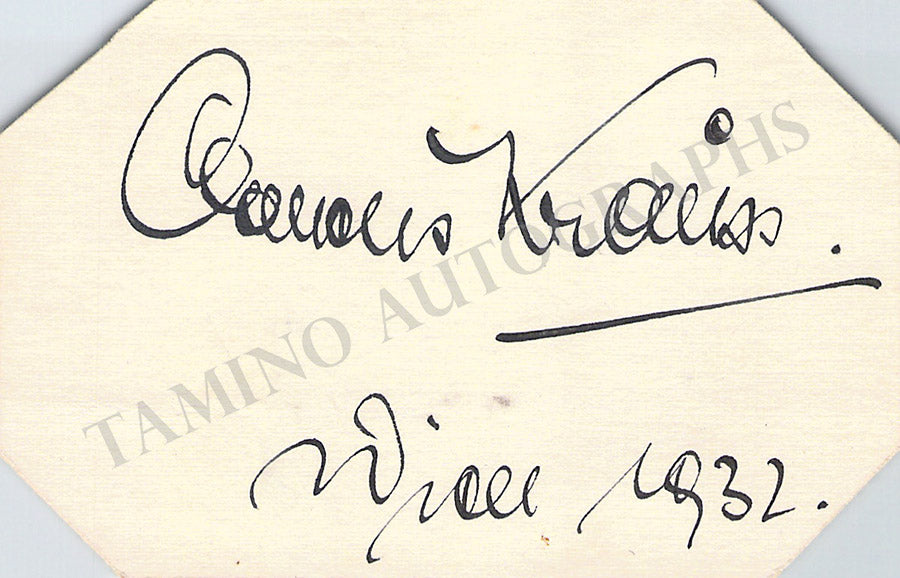 Clemens Krauss.
TAMINO AUTOGRAPHS
Wien 1932.